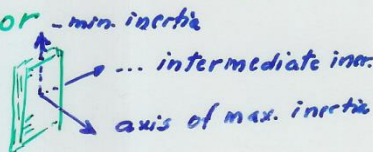 or - min. inertia
... intermediate iner.
axis of max. inertia